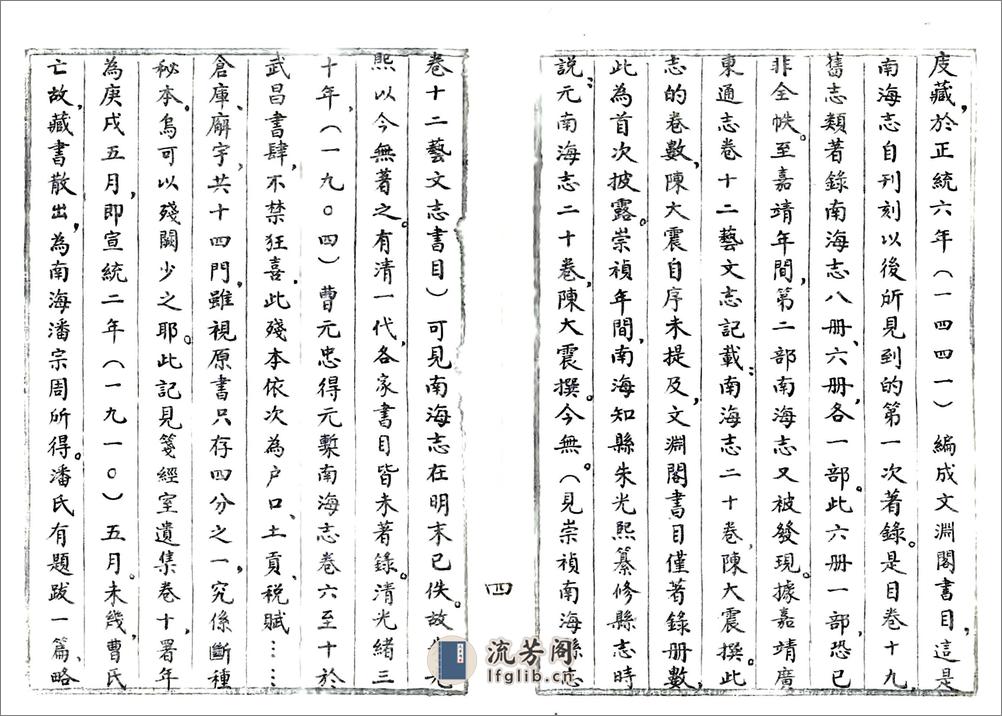 庋藏，於正統六年（一四四一）編成文淵閣書目，這是
南海志自刊刻以後所見到的第一次著錄。是目卷十九，
舊志類著錄南海志八册、六册，各一部。此六册一部，恐已
非全帙。至嘉靖年間，第二部南海志又被發現。據嘉靖廣
東通志卷十二藝文志記載：南海志二十卷，陳大震撰。此
志的卷數，陳大震自序未提及，文淵閣書目僅著錄册數，
此為首次披露。崇禎年間，南海知縣朱光熙纂修縣志時
說：元南海志二十卷，陳大震撰。今無。（見崇禎南海縣志
卷十二藝文志書目）可見南海志在明末已佚。故光
熙以今無著之。有清一代，各家書目皆未著錄。清光緒三
十年，（一九〇四）曹元忠得元槧南海志卷六至十於
武昌書肆，不禁狂喜。此殘本依次為户口、土貢、税賦……
倉庫、廨宇，共十四門，雖視原書只存四分之一，究係斷種
秘本。烏可以殘闕少之耶。此記見箋經室遺集卷十，署年
為庚戌五月，即宣統二年（一九一〇）五月。未幾，曹氏
亡故，藏書散出，為南海潘宗周所得。潘氏有題跋一篇，略
四
流芳阁
lfglib.cn